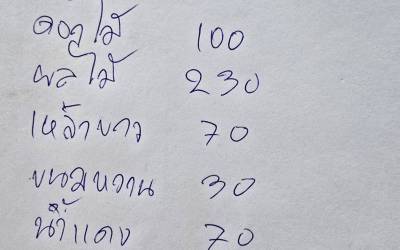 ดอกไม้ 100
ผลไม้ 230
เหล้าขาว 70
ขนมหวาน 30
น้ำแดง 70